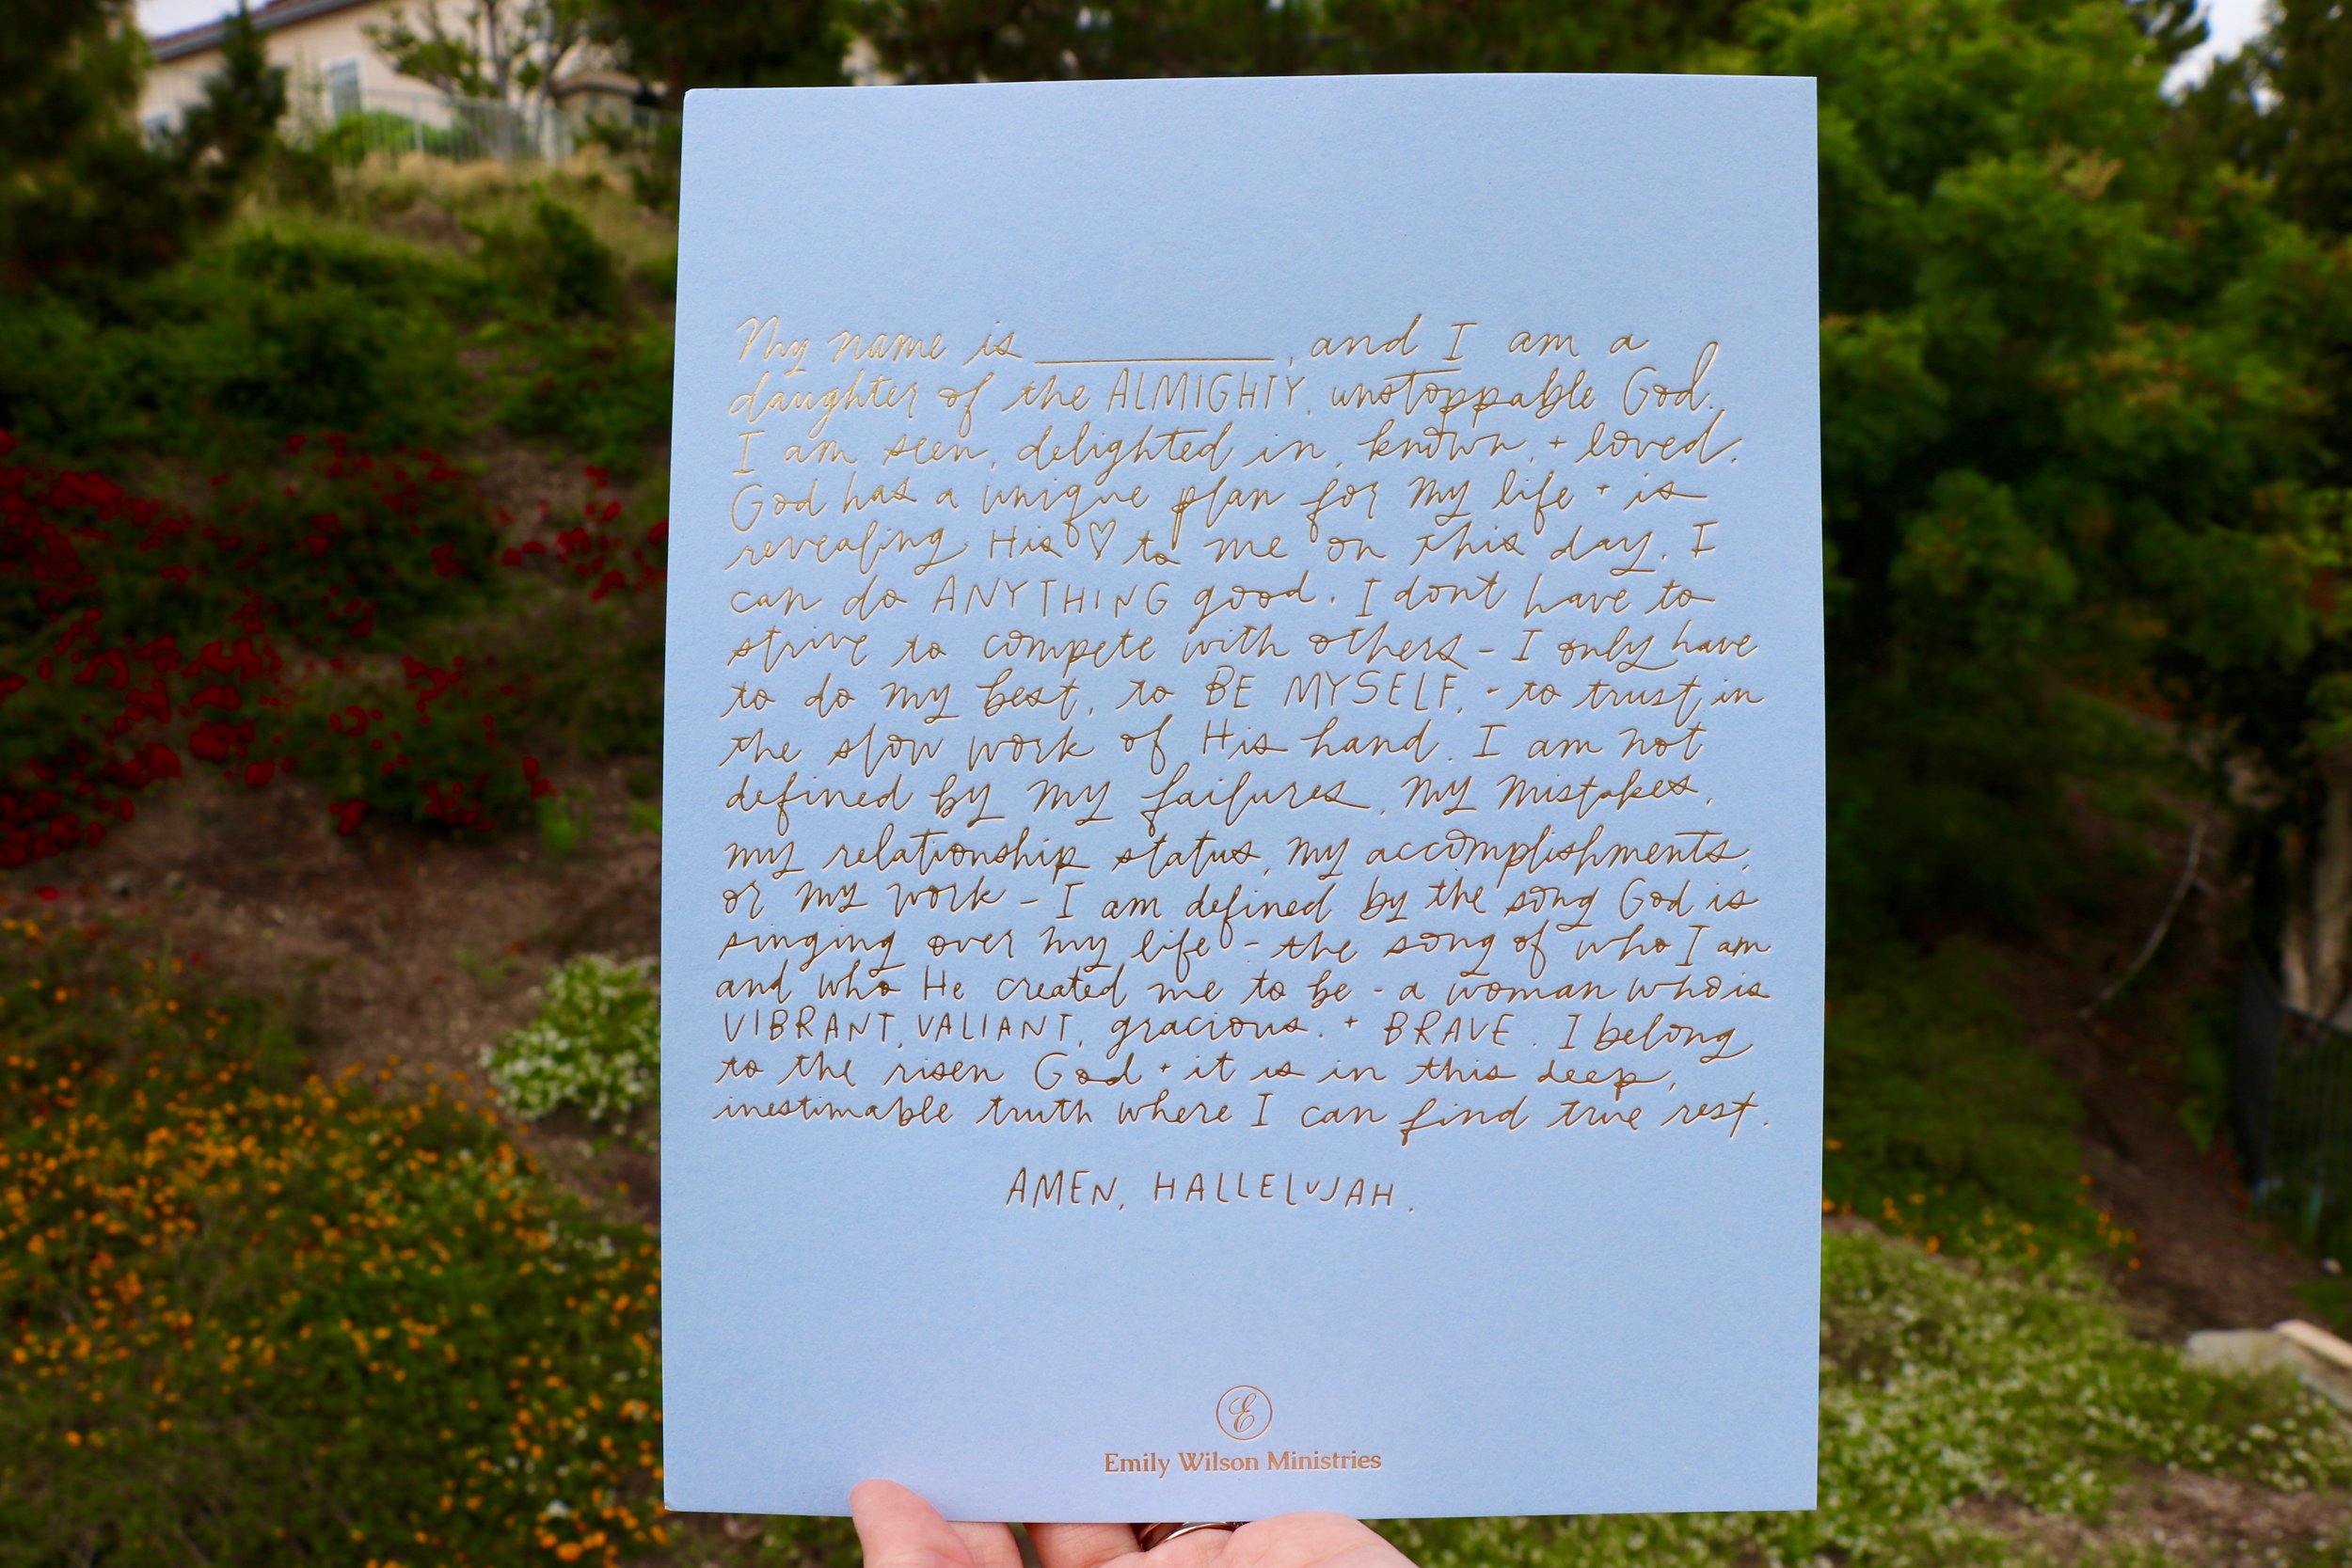 My name is ____________, and I am a
daughter of the ALMIGHTY, unstoppable God.
I am seen, delighted in, known, + loved.
God has a unique plan for my life + is
revealing His ♡ to me on this day. I
can do ANYTHING good. I don't have to
strive to compete with others - I only have
to do my best, to BE MYSELF, - to trust in
the slow work of His hand. I am not
defined by my failures, my mistakes,
my relationship status, my accomplishments,
or my work - I am defined by the song God is
singing over my life - the song of who I am
and who He created me to be - a woman who is
VIBRANT, VALIANT, gracious, + BRAVE. I belong
to the risen God + it is in this deep,
inestimable truth where I can find true rest.
AMEN, HALLELUJAH.
E
Emily Wilson Ministries